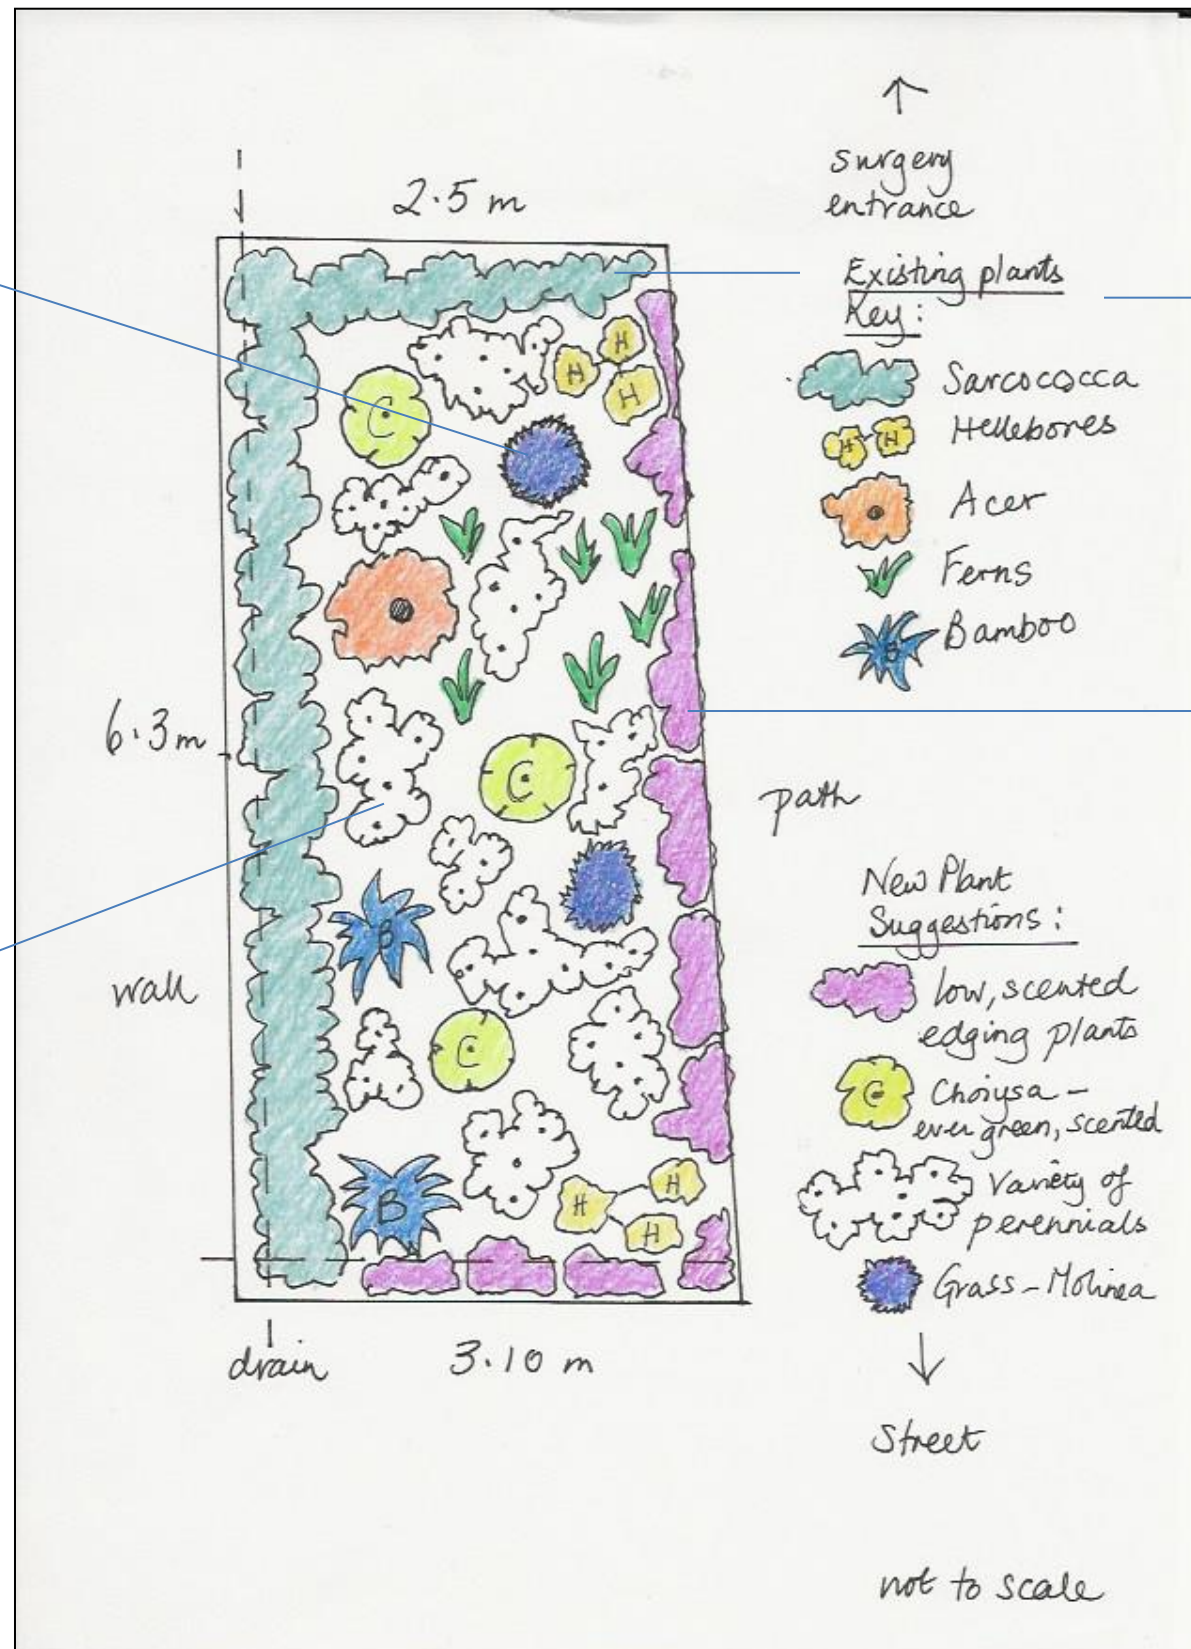 ↑
surgery
entrance
2.5 m
Existing plants
Key:
Sarcococca
H H Hellebores
Acer
Ferns
B Bamboo
H
H
H
C
6.3m
C
path
New Plant
Suggestions:
low, scented
edging plants
C Choiysa –
evergreen, scented
Variety of
perennials
Grass – Molinea
B
wall
C
B
H
H
H
drain
3.10 m
↓
Street
not to scale